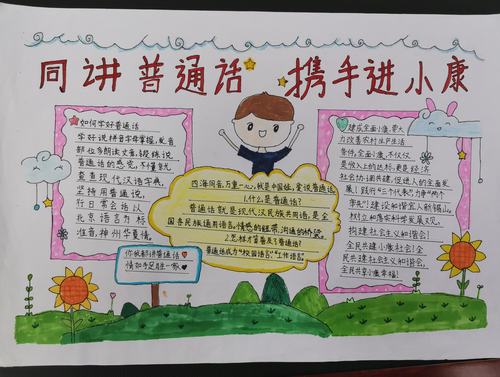 同讲普通话 携手进小康
如何学好普通话
学好说拼音字母掌握,发音
部位多朗读文章,锻炼说
普通话的感觉,不懂就
查查现代汉语字典,
坚持用普通说,
行日常会话认
北京语言为标
准音,神州华夏情。
你我都讲普通话
情如手足胜一家
四海同音,万众一心,我是中国娃,爱说普通话
1.什么是普通话?
普通话就是现代汉民族共同语,是全
国各民族通用语言。情感的纽带,沟通的桥梁。
2.怎样才算普及了普通话?
普通话成为"校园语言""工作语言"
建成全面小康,带大
力改善农村生产生活
条件,全面小康,不仅仅
是收入上的达标,更是经济
社会协调共建,促进人的全面发
展!践行"三个代表"力争"两个
率先"建设和谐宜人新锡山。
树立和落实科学发展观,
构建社会主义和谐社会!
全民共建小康社会!全
民共建社会主义和谐社会,
全民共享小康幸福!